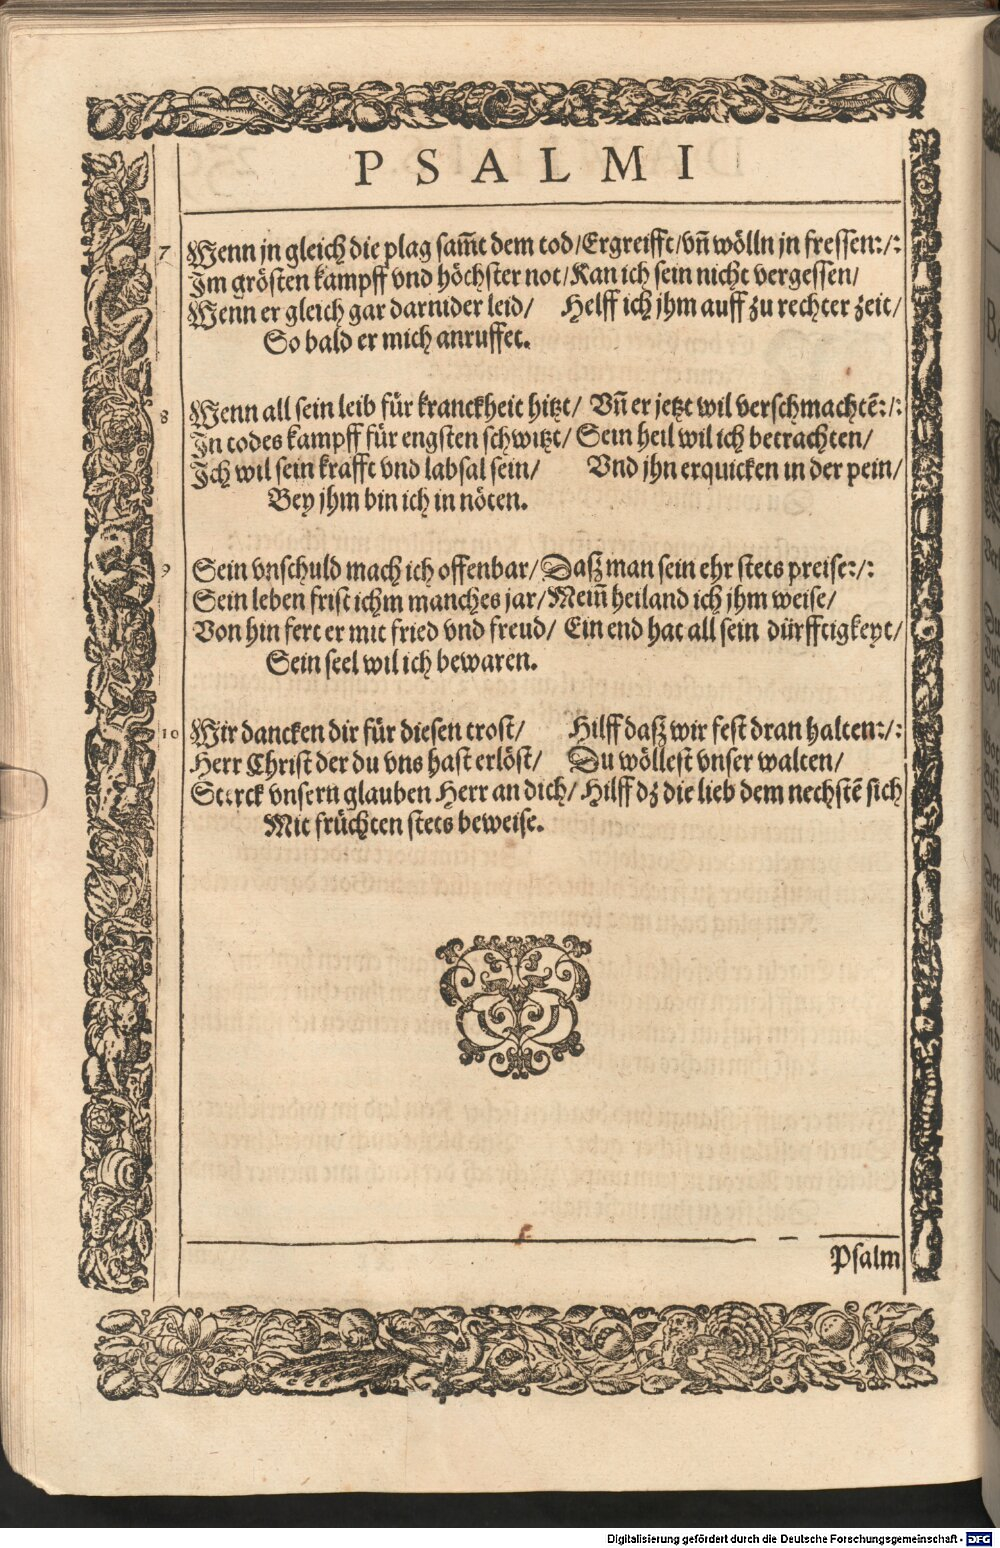 PSALMI
7 Wenn jn gleich die plag sam̃t dem tod/Ergreifft/vn̄ wölln jn fressen:/:
Im grösten kampff vnd höchster not/Kan ich sein nicht vergessen/
Wenn er gleich gar darnider leid/ Helff ich jhm auff zu rechter zeit/
So bald er mich anruffet.
8 Wenn all sein leib für kranckheit hitzt/ Vn̄ er jetzt wil verschmachtē:/:
In todes kampff für engsten schwitzt/ Sein heil wil ich betrachten/
Ich wil sein krafft vnd labsal sein/ Vnd jhn erquicken in der pein/
Bey jhm bin ich in nöten.
9 Sein vnschuld mach ich offenbar/Daß man sein ehr stets preise:/:
Sein leben frist ichm manches jar/Meim̃ heiland ich jhm weise/
Von hin fert er mit fried vnd freud/ Ein end hat all sein dürfftigkeyt/
Sein seel wil ich bewaren.
10 Wir dancken dir für diesen trost/ Hilff daß wir fest dran halten:/:
Herr Christ der du vns hast erlöst/ Du wöllest vnser walten/
Sterck vnsern glauben Herr an dich/ Hilff dz die lieb dem nechstē sich
Mit früchten stets beweise.
Psalm
Digitalisierung gefördert durch die Deutsche Forschungsgemeinschaft - DFG